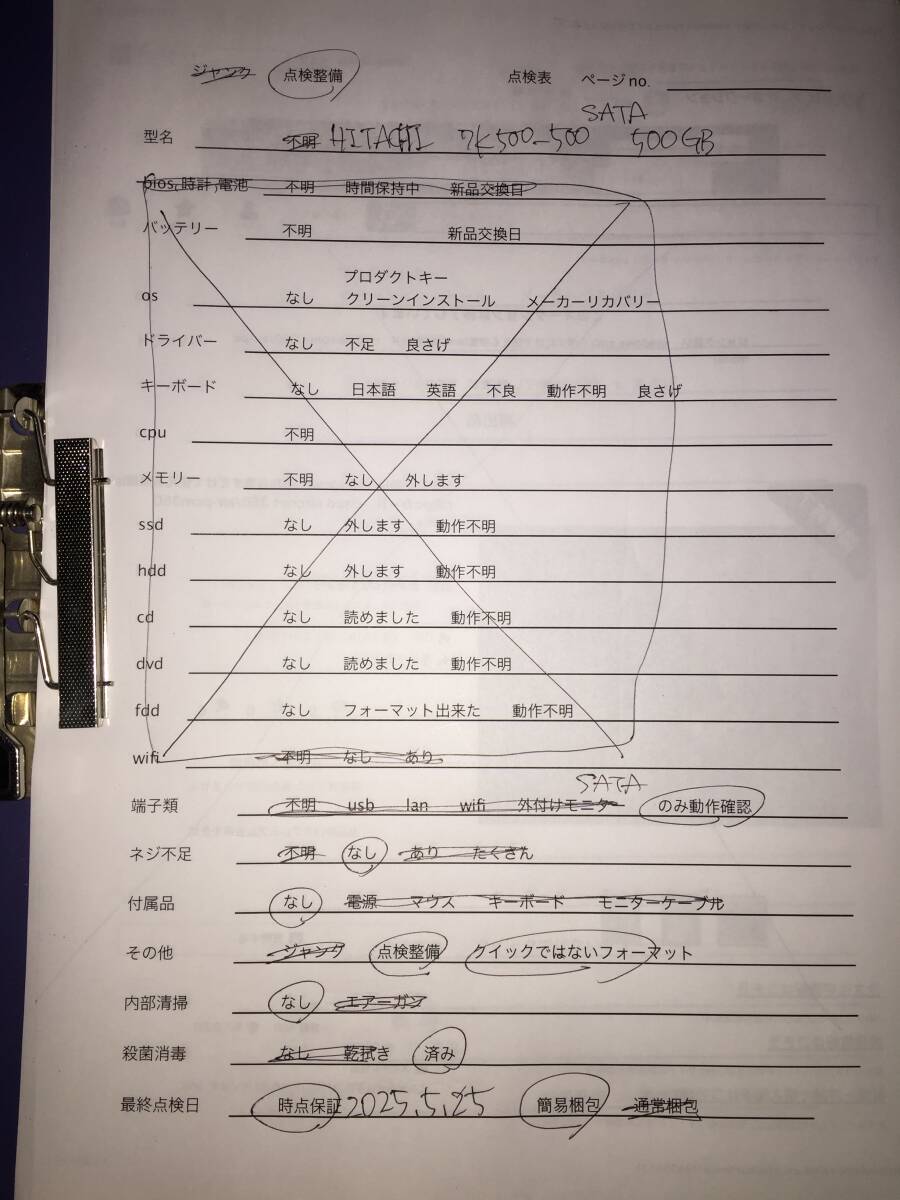 ジャンク 点検整備 点検表 ページno.
SATA
型名 不明 HITACHI 7K500-500 500GB
bios,時計,電池 不明 時間保持中 新品交換日
バッテリー 不明 新品交換日
プロダクトキー
os なし クリーンインストール メーカーリカバリー
ドライバー なし 不足 良さげ
キーボード なし 日本語 英語 不良 動作不明 良さげ
cpu 不明
メモリー 不明 なし 外します
ssd なし 外します 動作不明
hdd なし 外します 動作不明
cd なし 読めました 動作不明
dvd なし 読めました 動作不明
fdd なし フォーマット出来た 動作不明
wifi 不明 なし あり
SATA
端子類 不明 usb lan wifi 外付けモニター のみ動作確認
ネジ不足 不明 なし あり たくさん
付属品 なし 電源 マウス キーボード モニターケーブル
その他 ジャンク 点検整備 クイックではないフォーマット
内部清掃 なし エアーガン
殺菌消毒 なし 乾拭き 済み
最終点検日 時点保証 2025.5.25 簡易梱包 通常梱包